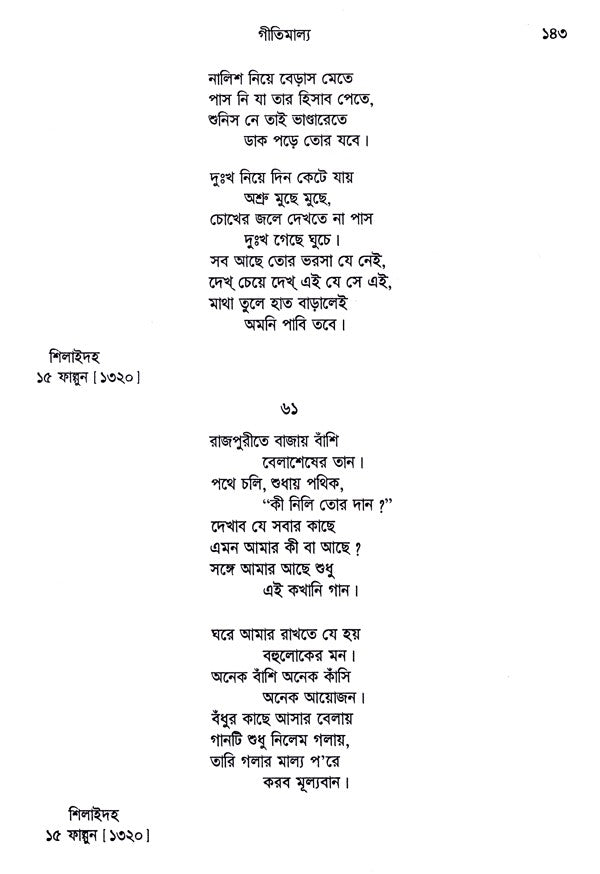 গীতিমাল্য ১৪৩
নালিশ নিয়ে বেড়াস মেতে
পাস নি যা তার হিসাব পেতে,
শুনিস নে তাই ভাণ্ডারেতে
ডাক পড়ে তোর যবে।
দুঃখ নিয়ে দিন কেটে যায়
অশ্রু মুছে মুছে,
চোখের জলে দেখতে না পাস
দুঃখ গেছে ঘুচে।
সব আছে তোর ভরসা যে নেই,
দেখ্ চেয়ে দেখ্ এই যে সে এই,
মাথা তুলে হাত বাড়ালেই
অমনি পাবি তবে।
শিলাইদহ
১৫ ফাল্গুন [১৩২০]
৬১
রাজপুরীতে বাজায় বাঁশি
বেলাশেষের তান।
পথে চলি, শুধায় পথিক,
“কী নিলি তোর দান?”
দেখাব যে সবার কাছে
এমন আমার কী বা আছে?
সঙ্গে আমার আছে শুধু
এই কখানি গান।
ঘরে আমার রাখতে যে হয়
বহুলোকের মন।
অনেক বাঁশি অনেক কাঁসি
অনেক আয়োজন।
বঁধুর কাছে আসার বেলায়
গানটি শুধু নিলেম গলায়,
তারি গলার মাল্য প'রে
করব মূল্যবান।
শিলাইদহ
১৫ ফাল্গুন [১৩২০]